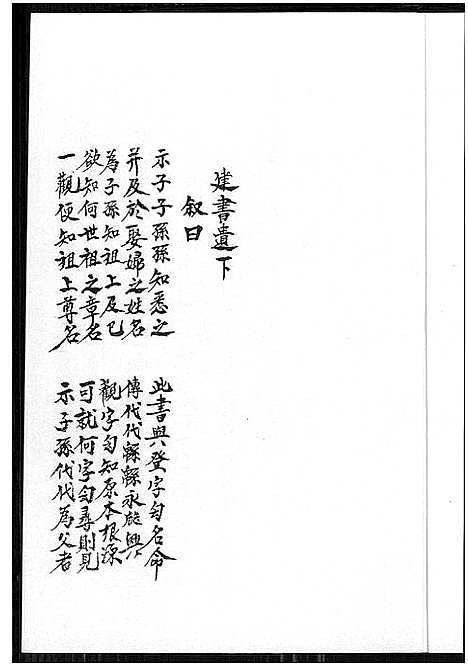 建書遺下
叙曰
示子子孫孫知悉之 此書與登字句名命
并及於娶婦之姓名 傳代代綿綿永旋興
為子孫知祖上及已 觀字句知原本根源
欲知何世祖之章名 可就何字句尋則見
一觀便知祖上尊名 示子孫代代為父者